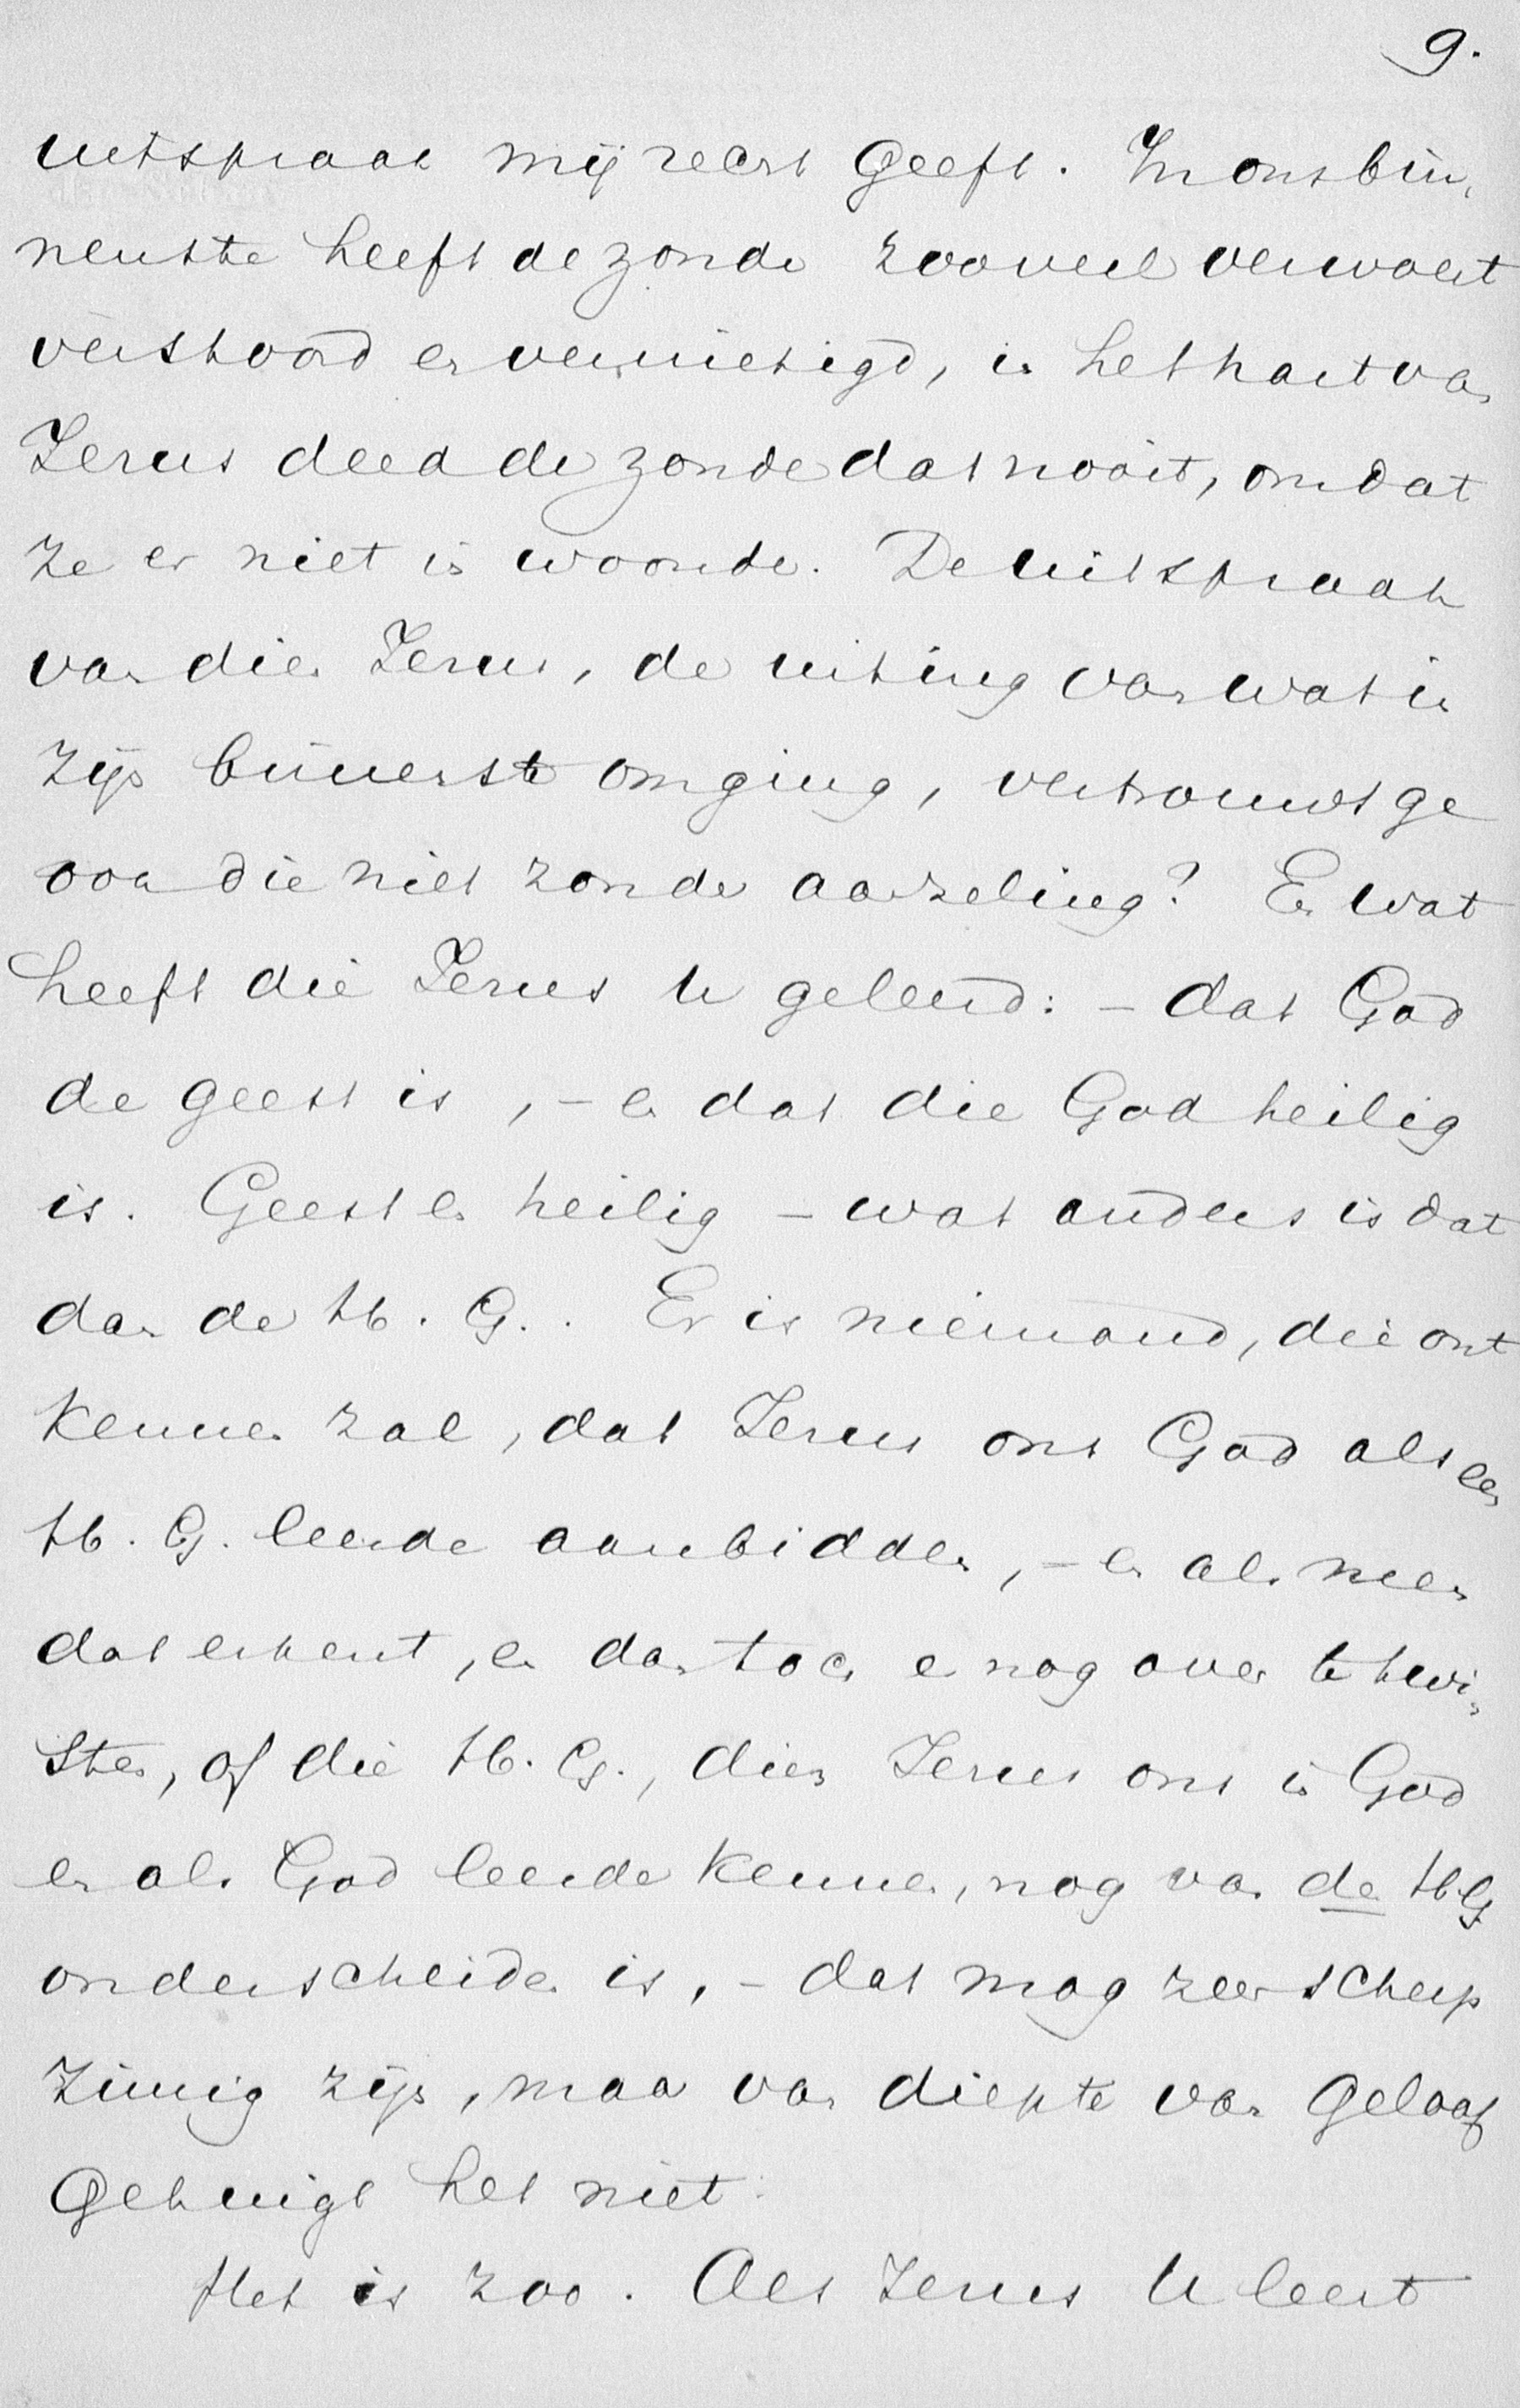 9.
uitspraak mij recht geeft. In ons bin,
nenste heeft de zonde zooveel verwoest
verstoord en vernietigd, in het hart van
Jezus deed de zonde dat nooit, omdat
ze er niet in woonde. De uitspraak
van dien Jezus, de uiting van wat in
zijn binnenste omging, vertrouwt ge
ook die niet zonder aarzeling? En wat
heeft die Jezus U geleerd: - dat God
de geest is, - en dat die God heilig
is. Geest en heilig - wat anders is dat
dan de H. G.. Er is niemand, die ont
kennen zal, dat Jezus ons God als een
H. G. leerde aanbidden, - en als men
dat erkent, en dan toch er nog over te twi,
sten, of die H. G., dien Jezus ons in God
en als God leerde kennen, nog van de H G
onderscheiden is, - dat mag zeer scherp
zinnig zijn, maar van diepte van geloof
getuigt het niet.
Het is zoo. Als Jezus U leert